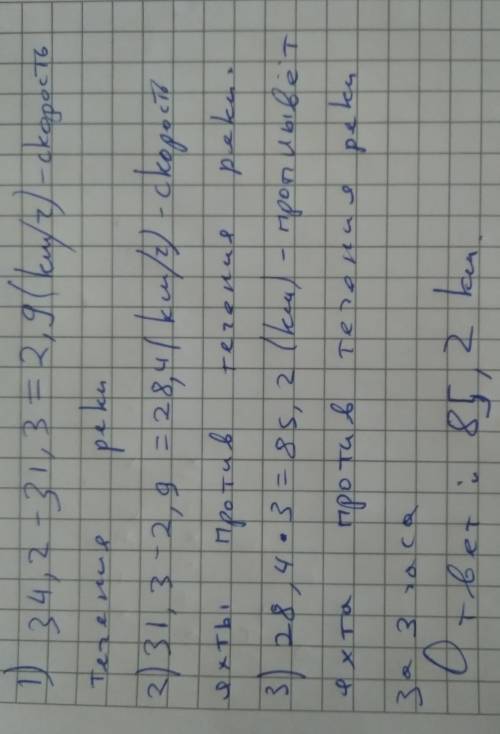 1) 34,2-31,3=2,9(км/ч)-скорость
течения реки
2) 31,3-2,9=28,4(км/ч)-скорость
яхты против течения реки.
3) 28,4•3=85,2 (км)-проплывёт
яхта против течения реки
за 3 часа
Ответ: 85,2 км.